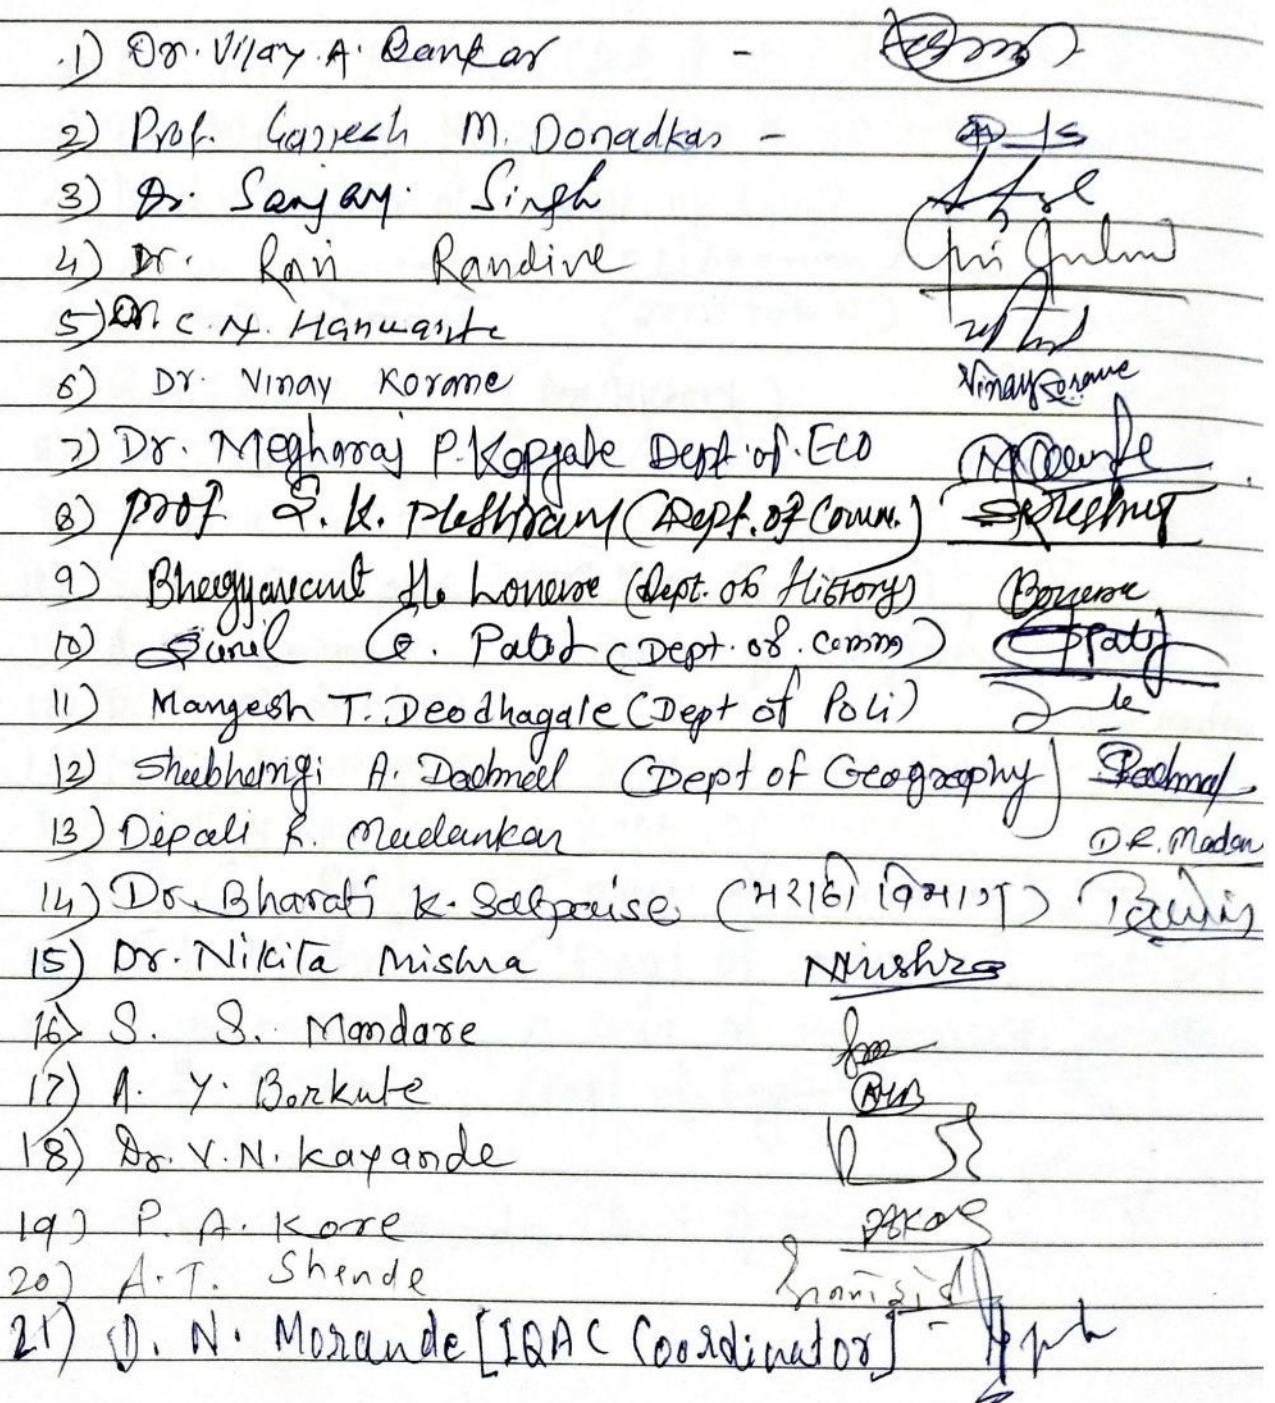 1) Dr. Vijay. A. Bankar -
2) Prof. Ganesh M. Donadkar -
3) Dr. Sanjay. Singh
4) Dr. Ravi Randive
5) Dr C. N. Hanwante
6) Dr. Vinay Korane Vinay Korane
7) Dr. Megharaj P. Kopgate Dept. of. ECO
8) Prof S. K. Meshram (Dept. of Comm.)
9) Bhagyawant H. Lonare (Dept. of History)
10) Sunil G. Patil (Dept. of. comm)
11) Mangesh T. Deodhagale (Dept of Poli)
12) Shubhangi A. Dadmal (Dept of Geography) Dadmal
13) Dipali R. Madankar D.R. Madan
14) Dr. Bharati K. Satpaise (मराठी विभाग)
15) Dr. Nikita Mishra NMishra
16) S. S. Mandare
17) A. Y. Borkute
18) Dr. V. N. Kayande
19) P. A. Kore PAKore
20) A. T. Shende
21) D. N. Morande [IQAC Coordinator] -